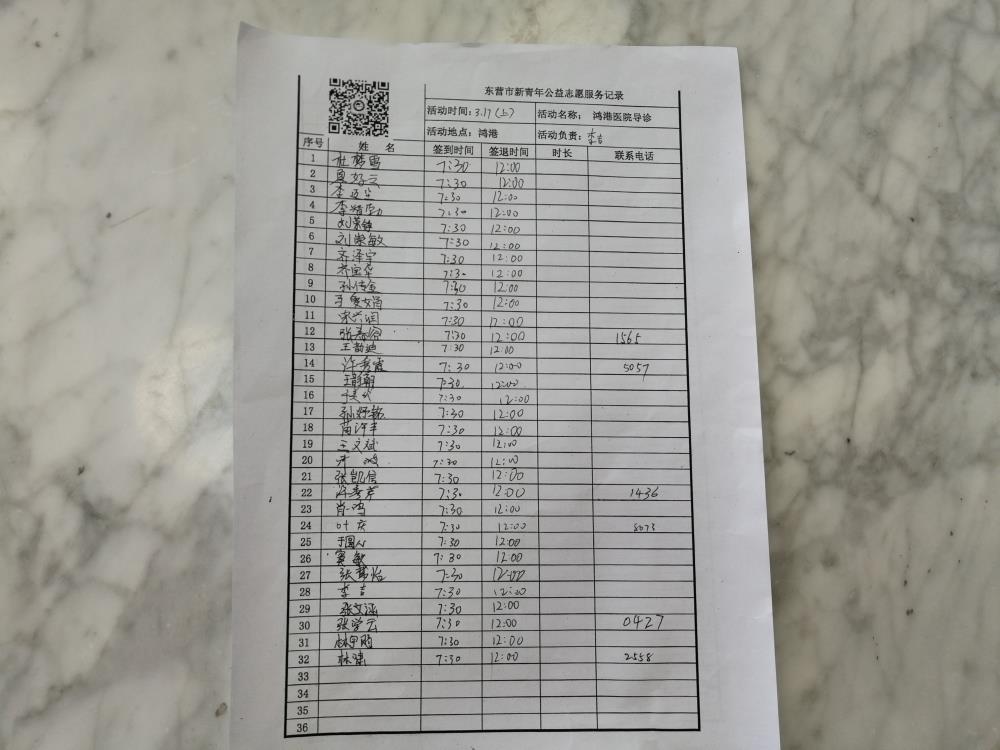 东营市新青年公益志愿服务记录
活动时间: 3.17(上) 活动名称: 鸿港医院导诊
活动地点: 鸿港 活动负责: 李吉
序号 姓 名 签到时间 签退时间 时长 联系电话
1 杜梦雪 7:30 12:00
2 夏好云 7:30 12:00
3 李 7:30 12:00
4 李 7:30 12:00
5 刘 7:30 12:00
6 刘崇敏 7:30 12:00
7 齐泽宇 7:30 12:00
8 齐宝华 7:30 12:00
9 孙传金 7:30 12:00
10 7:30 12:00
11 宋兴润 7:30 12:00
12 张春 7:30 12:00 1565
13 王韵迪 7:30 12:00
14 许秀霞 7:30 12:00 5057
15 7:30 12:00
16 7:30 12:00
17 孙 7:30 12:00
18 苗许丰 7:30 12:00
19 王文斌 7:30 12:00
20 7:30 12:00
21 张凯信 7:30 12:00
22 许秀芹 7:30 12:00 1436
23 肖鸿 7:30 12:00
24 叶庆 7:30 12:00 8073
25 7:30 12:00
26 窦敏 7:30 12:00
27 张梦怡 7:30 12:00
28 李吉 7:30 12:00
29 张文涵 7:30 12:00
30 张学云 7:30 12:00 0427
31 林 7:30 12:00
32 林 7:30 12:00 2558
33
34
35
36